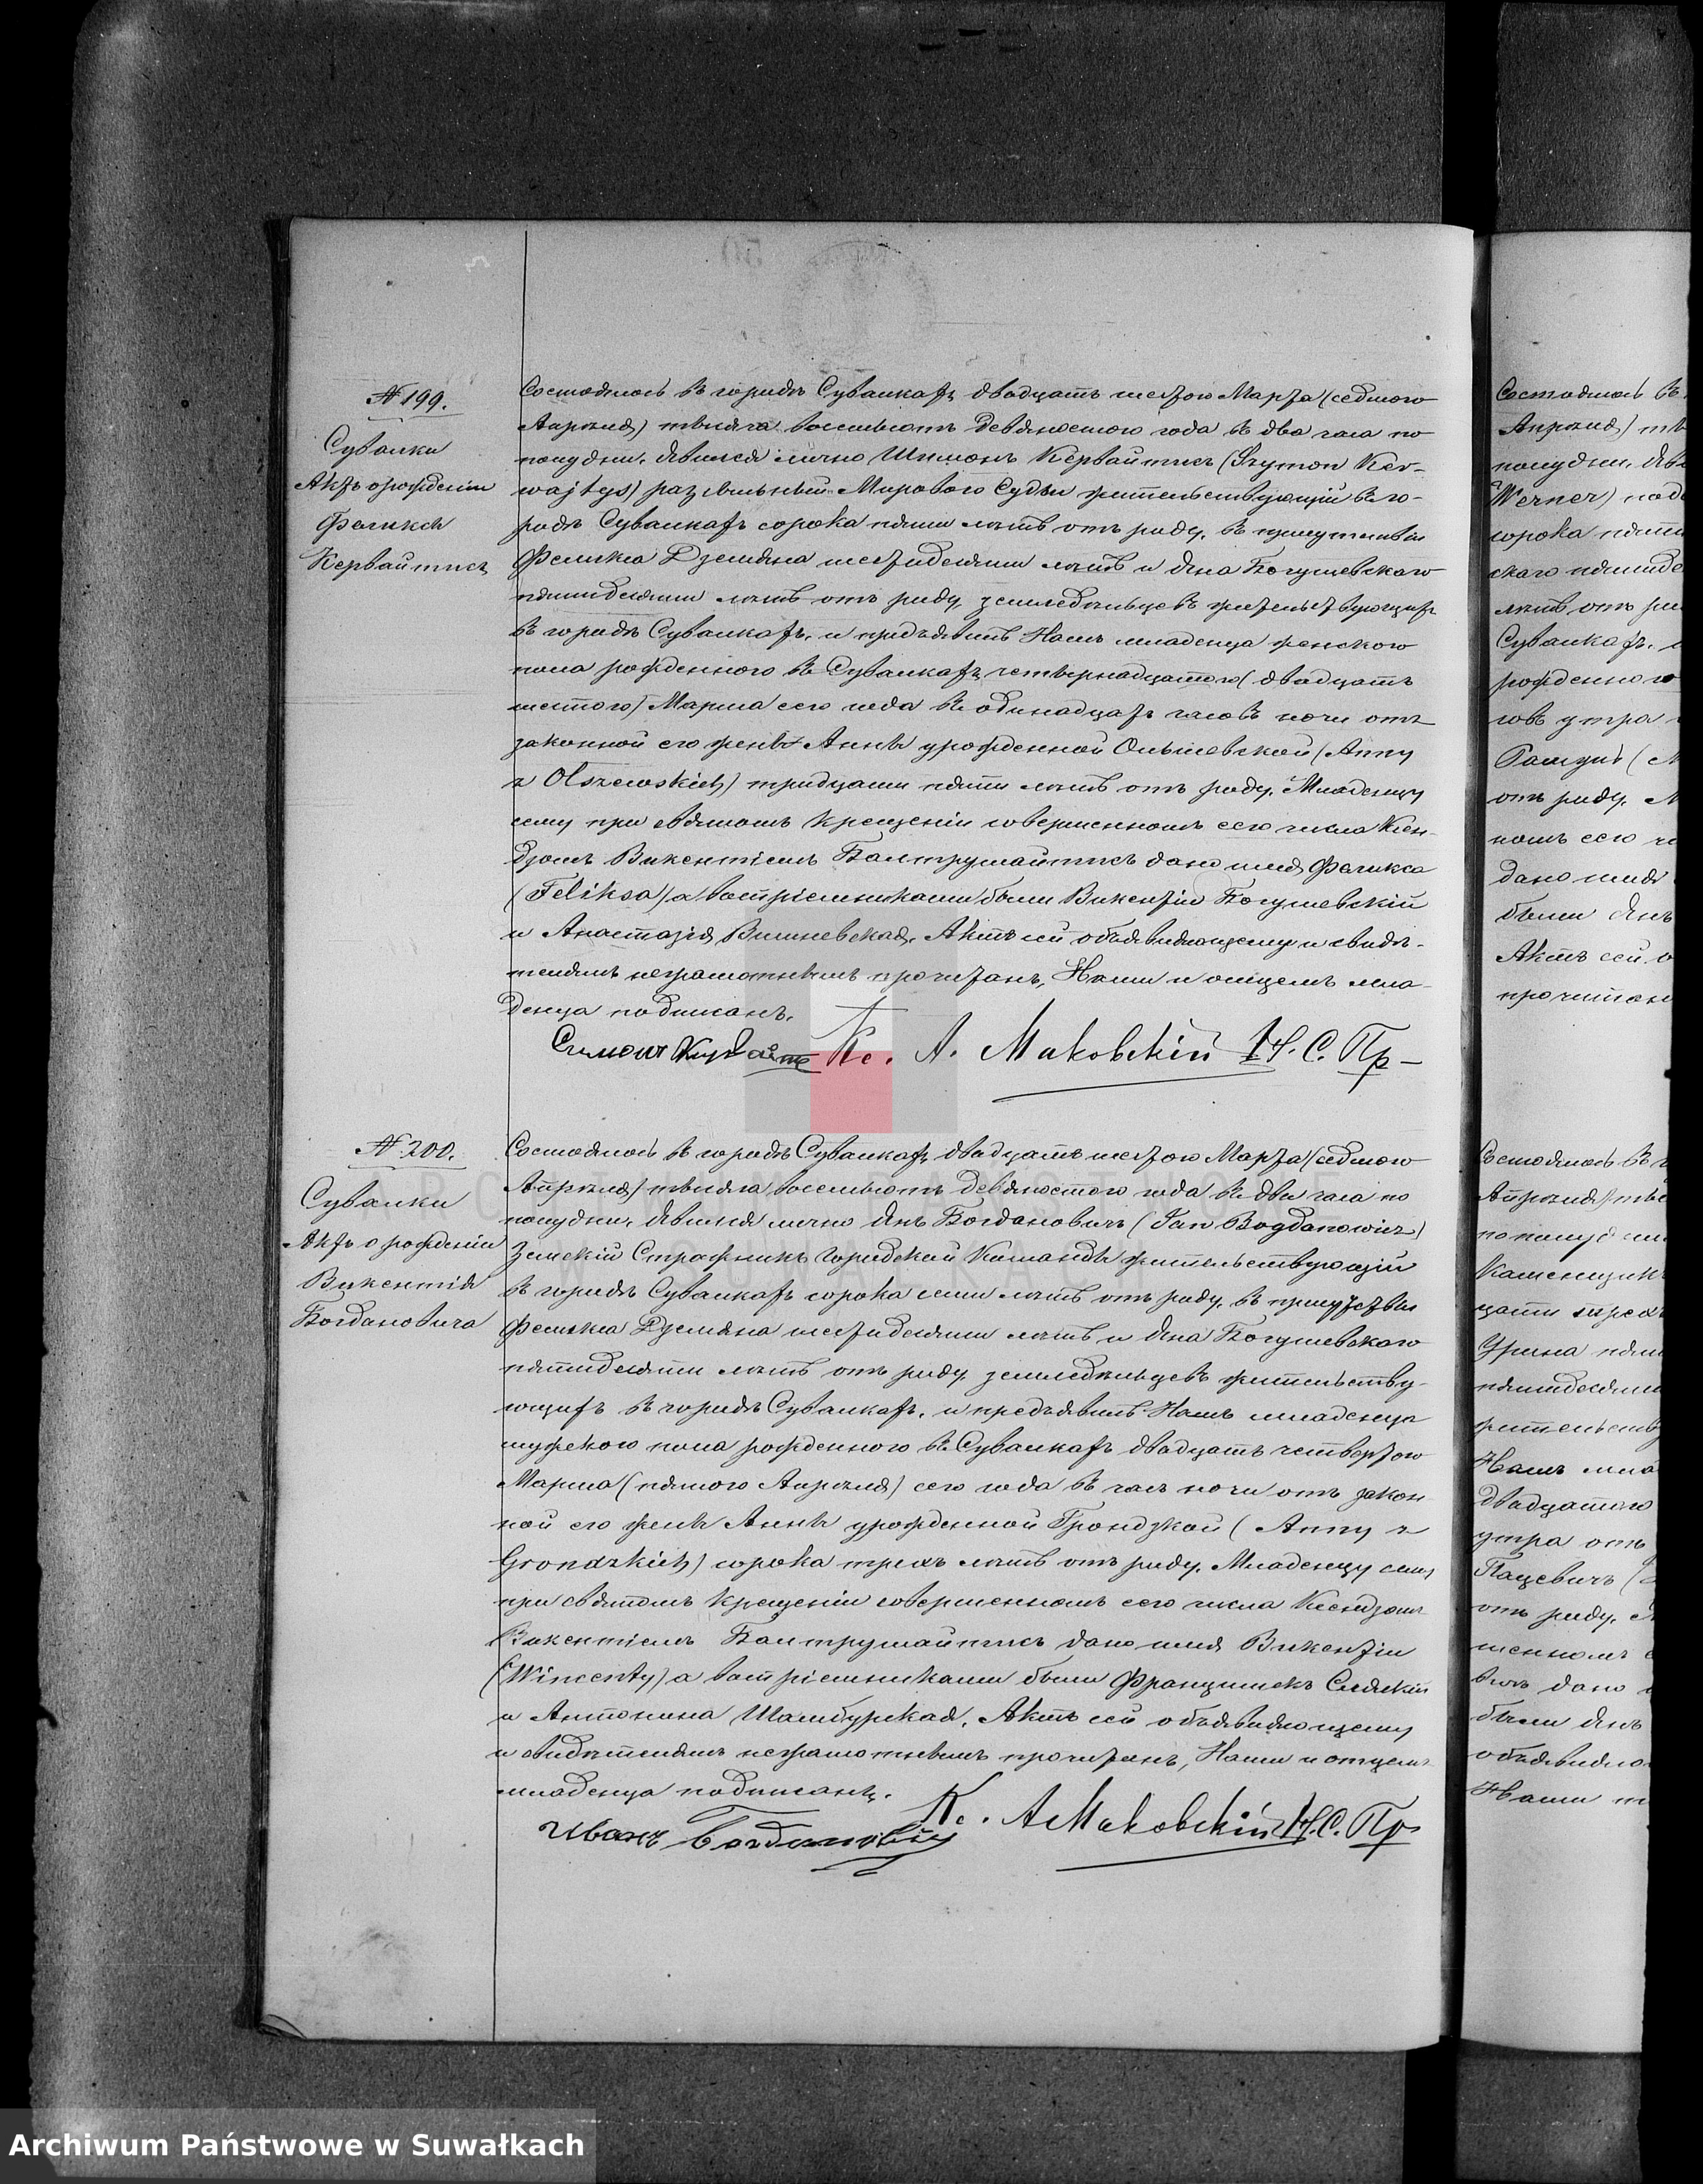 № 199.
Сувалки
Актъ о рожденіи
Феликса
Кервайтисъ
Состоялось въ городѣ Сувалкахъ двадцать шестого Марта (седьмого
Апрѣля) тысяча восемьсотъ девяностого года въ два часа по
полудни. Явился лично Шимонъ Кервайтисъ (Szymon Ker-
wajtys) разсыльный Мирового Судьи жительствующій въ го-
родѣ Сувалкахъ сорока пяти лѣтъ отъ роду, въ присутствіи
Феликса Дземяна шестидесяти лѣтъ и Яна Богушевскаго
пятидесяти лѣтъ отъ роду, земледѣльцевъ жительствующихъ
въ городѣ Сувалкахъ, и предъявилъ Намъ младенца женского
пола рожденного въ Сувалкахъ четырнадцатого (двадцать
шестого) Марта сего года въ одинадцать часовъ ночи отъ
законной его жены Анны урожденной Ольшевской (Anny
z Olszewskich) тридцати пяти лѣтъ отъ роду. Младенцу
сему при святомъ крещеніи совершенномъ сего числа Ксен-
дзомъ Викентіемъ Балтрушайтисъ дано имя Феликса
(Feliksa) а воспріемниками были Викентій Богушевскій
и Анастазія Вишневская. Актъ сей объявляющему и свидѣ-
телямъ неграмотнымъ прочитанъ, Нами и отцемъ мла-
денца подписанъ.
Кс. А. Маковскій Ч. С. Пр
№ 200.
Сувалки
Актъ о рожденіи
Викентія
Богдановича
Состоялось въ городѣ Сувалкахъ двадцать шестого Марта (седьмого
Апрѣля) тысяча восемьсотъ девяностого года въ два часа по
полудни. Явился лично Янъ Богдановичъ (Jan Bogdanowicz)
Земскій Стражникъ городской Команды жительствующій
въ городѣ Сувалкахъ сорока семи лѣтъ отъ роду, въ присутствіи
Феликса Дземяна шестидесяти лѣтъ и Яна Богушевскаго
пятидесяти лѣтъ отъ роду, земледѣльцевъ жительству-
ющихъ въ городѣ Сувалкахъ, и предъявилъ Намъ младенца
мужского пола рожденного въ Сувалкахъ двадцать четвертого
Марта (пятого Апрѣля) сего года въ часъ ночи отъ закон-
ной его жены Анны урожденной Грондзкой (Anny z
Grondzkich) сорока трехъ лѣтъ отъ роду. Младенцу сему
при святомъ крещеніи совершенномъ сего числа Ксендзомъ
Викентіемъ Балтрушайтисъ дано имя Викентій
(Wincenty) а воспріемниками были Францишекъ
и Антонина Шамбурская. Актъ сей объявляющему
и свидѣтелямъ неграмотнымъ прочитанъ, Нами и отцемъ
младенца подписанъ.
Иванъ Богдановичъ Кс. А Маковскій Ч. С. Пр
Состоялось въ
Апрѣля)
полудни. Яви
Werner)
сорока пяти
скаго пятиде
лѣтъ отъ ро
Сувалкахъ,
рожденного
совъ утра
отъ роду. М
номъ сего чи
дано имя
были Янъ
Актъ сей о
прочитан
Состоялось въ г
Апрѣля) тыс
по полудни
Каменщикъ
Намъ мла
двадцатого
утра отъ
Пацевичъ (
отъ роду. М
шенномъ с
дано и
были Янъ
объявляю
Нами
ARCHIWUM PAŃSTWOWE
W SUWAŁKACH
Archiwum Państwowe w Suwałkach